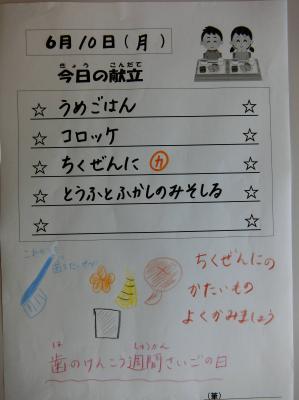 6月10日(月)
きょう こんだて
今日の献立
☆ うめごはん ☆
☆ コロッケ ☆
☆ ちくぜんに カ ☆
☆ とうふとふかしのみそしる ☆
☆ ☆
ちくぜんにの
かたいもの
よくかみましょう
は しゅうかん
歯のけんこう週間さいごの日
(筆)